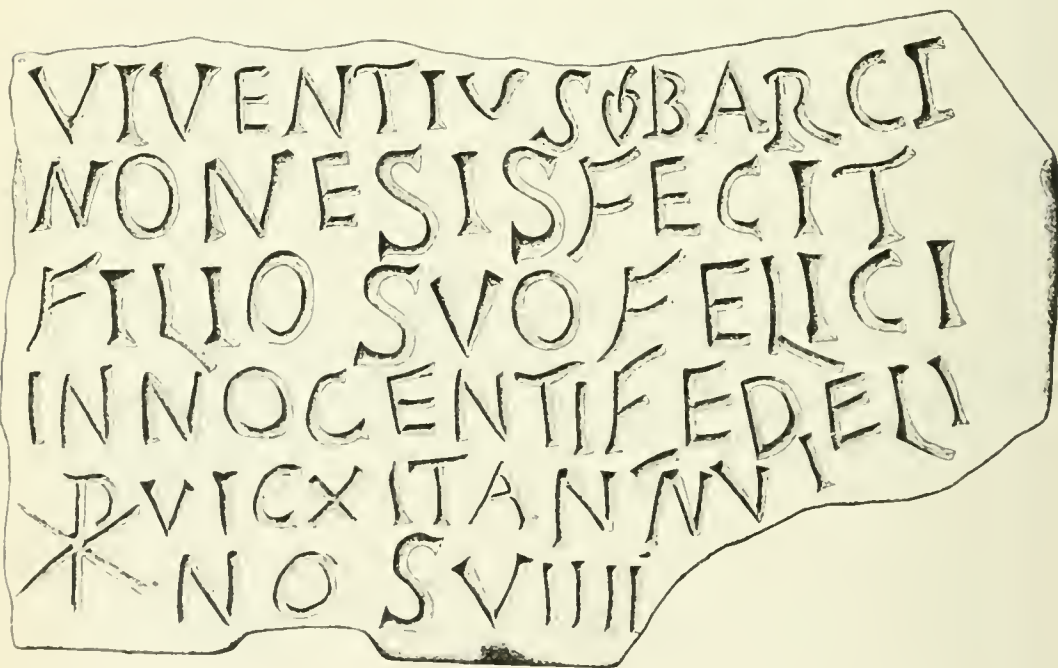 VIVENTIVS ❦ BARCI
NONESISFECIT
FILIO SVO FELICI
INNOCENTIFEDELI
☧ VICXITAN
NOSVIIII